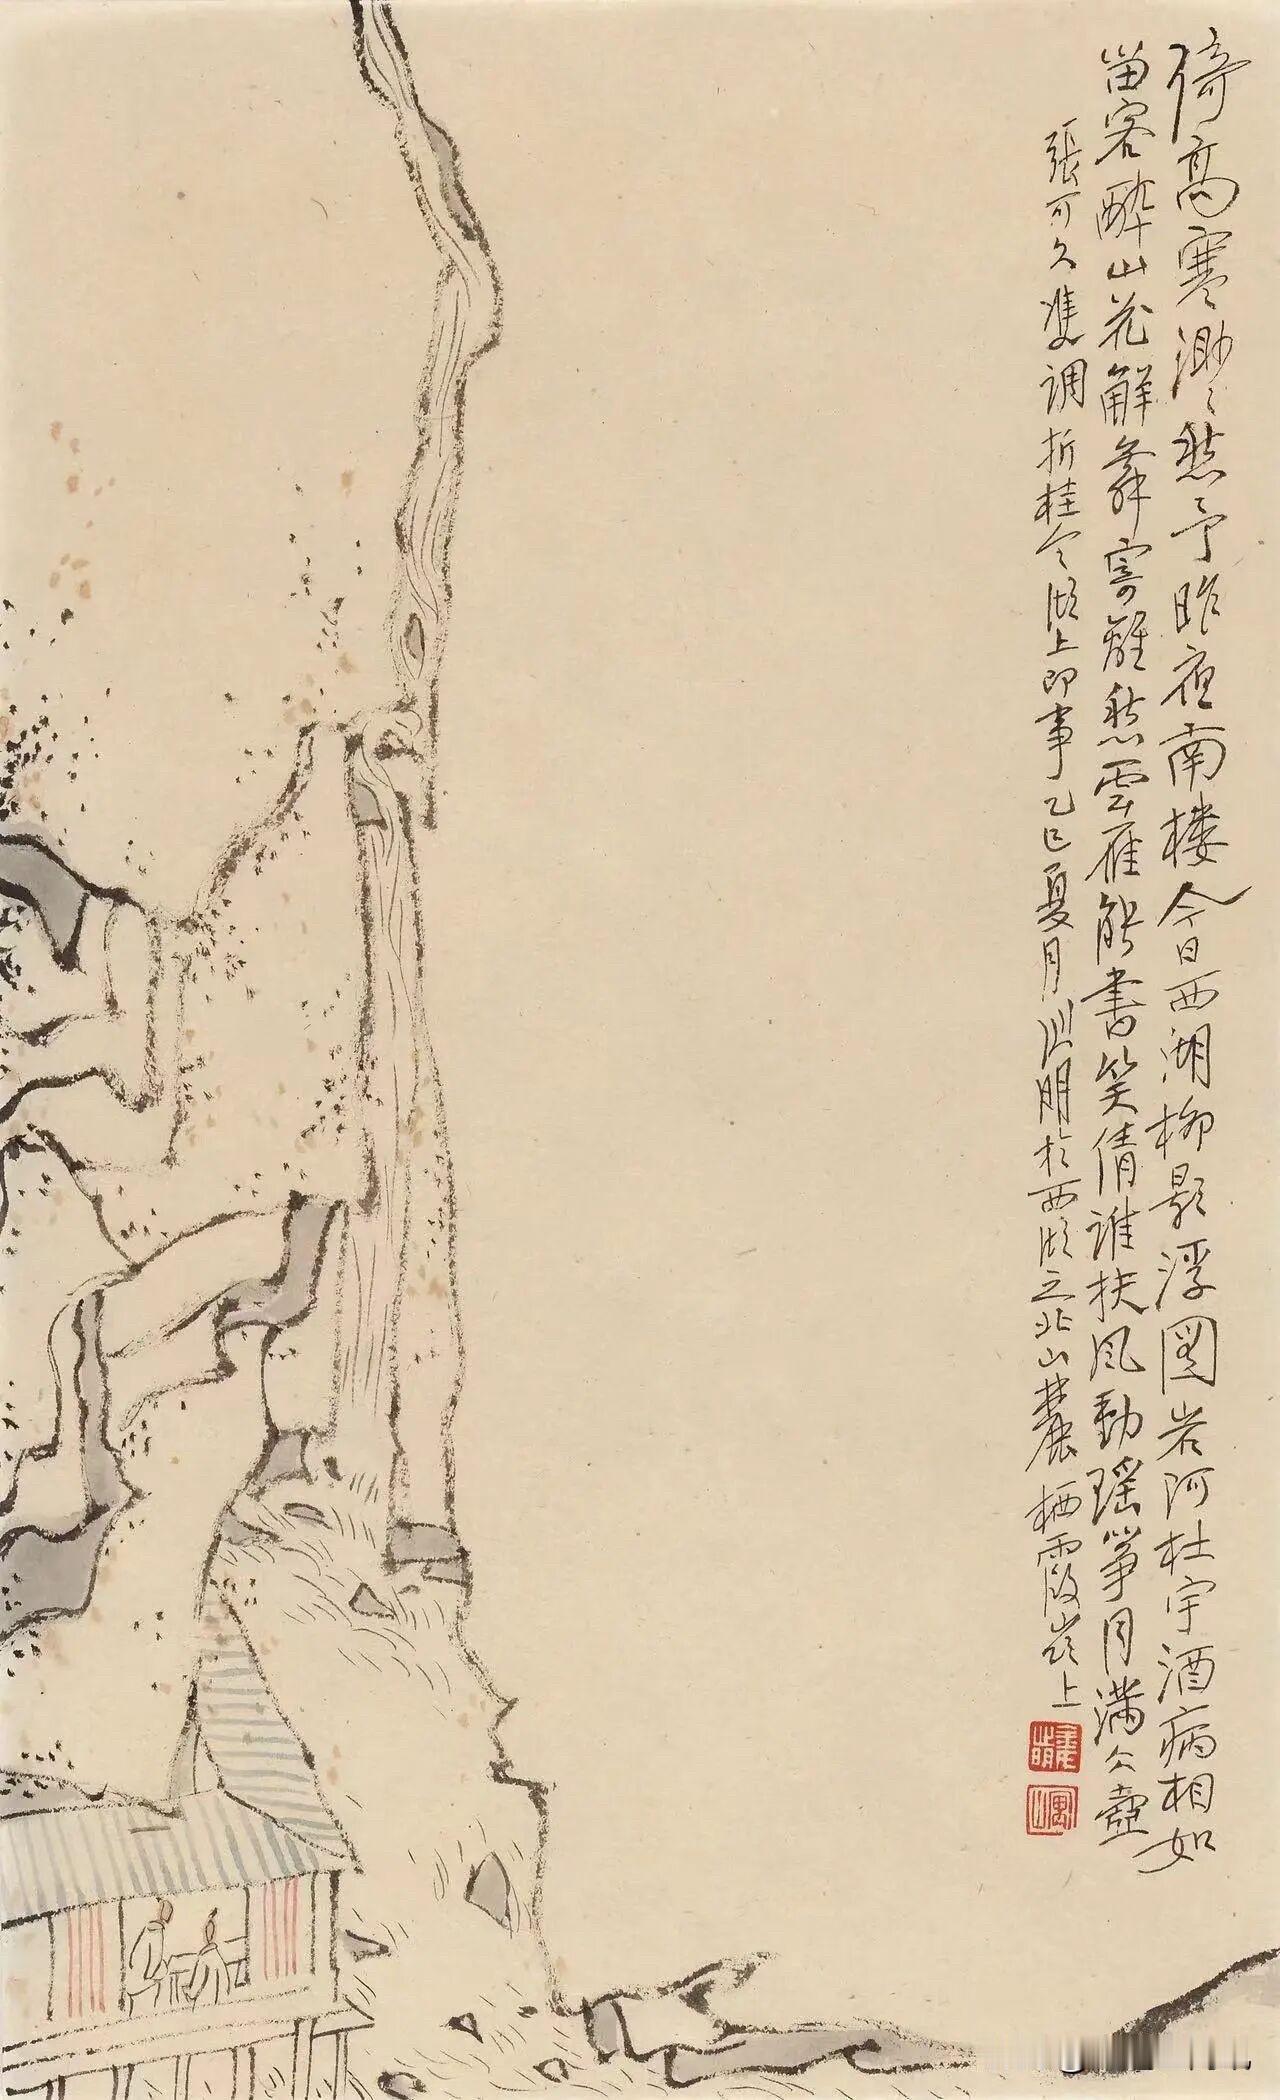 倚高寒渺渺愁予昨夜南楼今日西湖柳影浮图岩阿杜宇酒病相如
留客醉山花解舞寄离愁云雁能书笑倩谁扶风动瑶筝月满冰壶
張可久雙调折桂令湖上即事乙巳夏月明於西湖之北山麓栖霞岭上